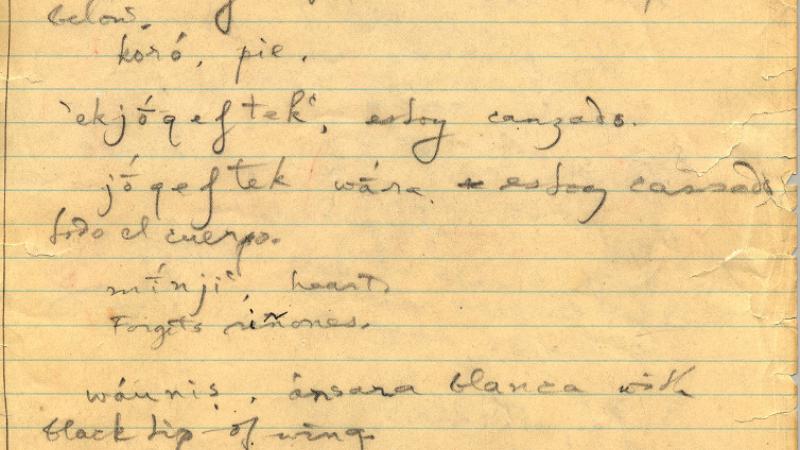 below.
koró, pie.
ʽekjṓqeftekʽ, estoy canzado.
jṓqeftek wára. estoy cansado
todo el cuerpo.
mī́njiʽ, heart.
Forgets riñones.
wáuniṣ, ánsara blanca with
black tip of wing